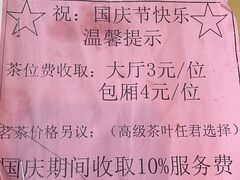 祝：国庆节快乐
温馨提示
茶位费收取：大厅3元/位
包厢4元/位
茗茶价格另议：（高级茶叶任君选择）
国庆期间收取10%服务费